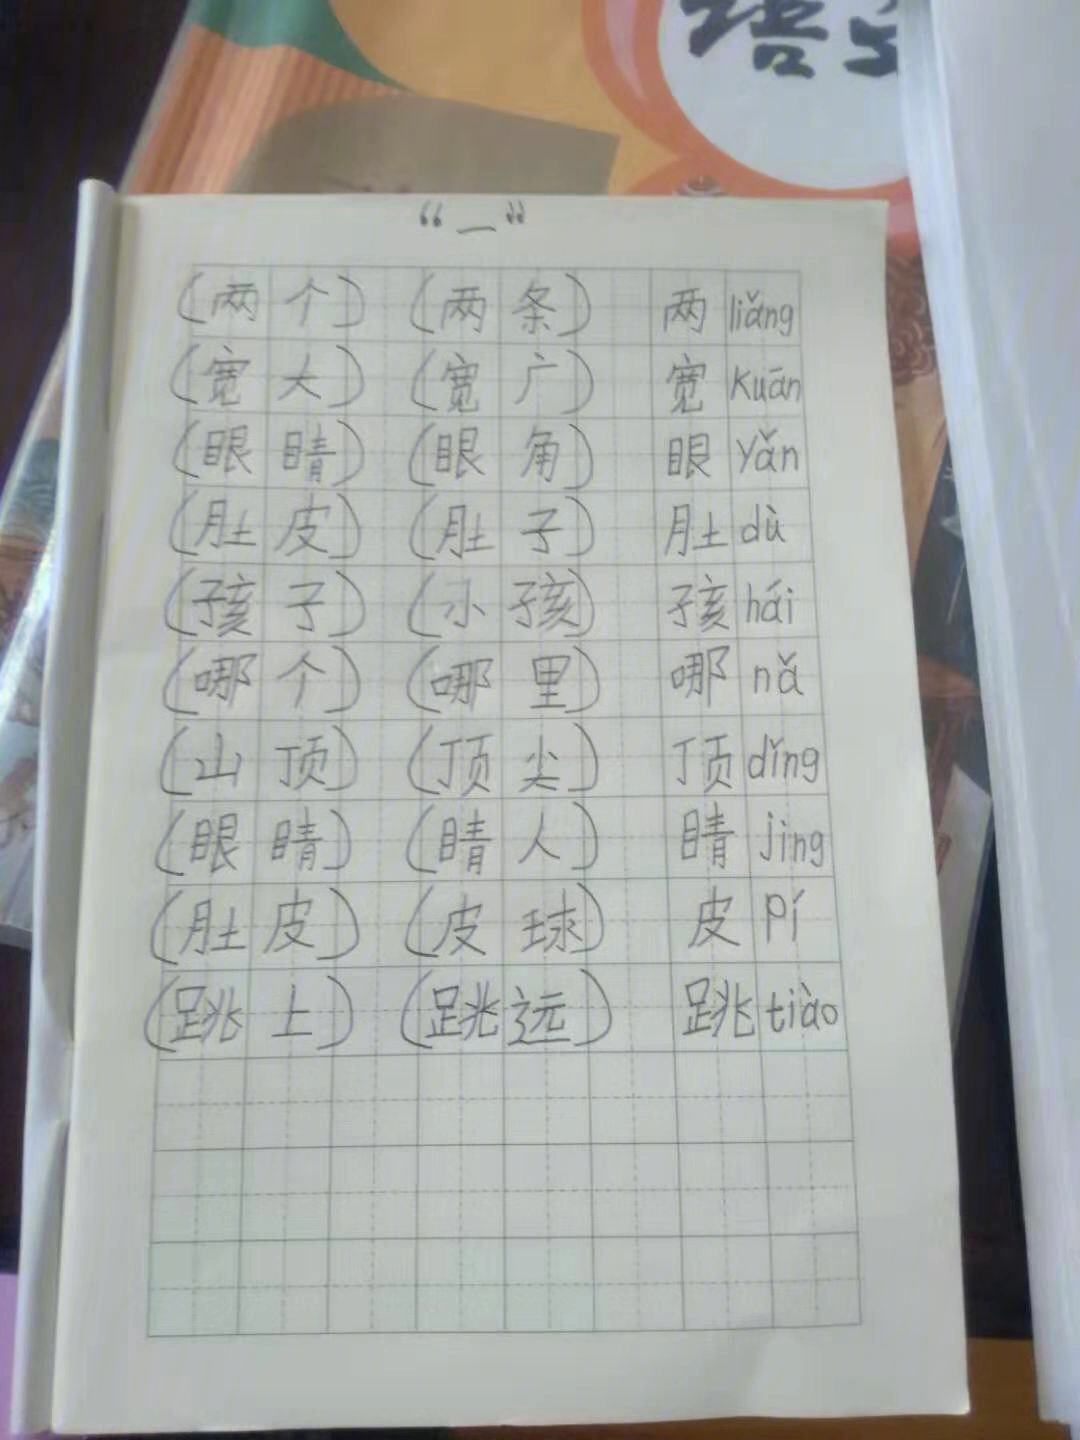 语
“一”
(两个) (两条) 两 liǎng
(宽大) (宽广) 宽 Kuān
(眼睛) (眼角) 眼 Yǎn
(肚皮) (肚子) 肚 dù
(孩子) (小孩) 孩 hái
(哪个) (哪里) 哪 nǎ
(山顶) (顶尖) 顶 dǐng
(眼睛) (睛人) 睛 jing
(肚皮) (皮球) 皮 Pí
(跳上) (跳远) 跳 tiào